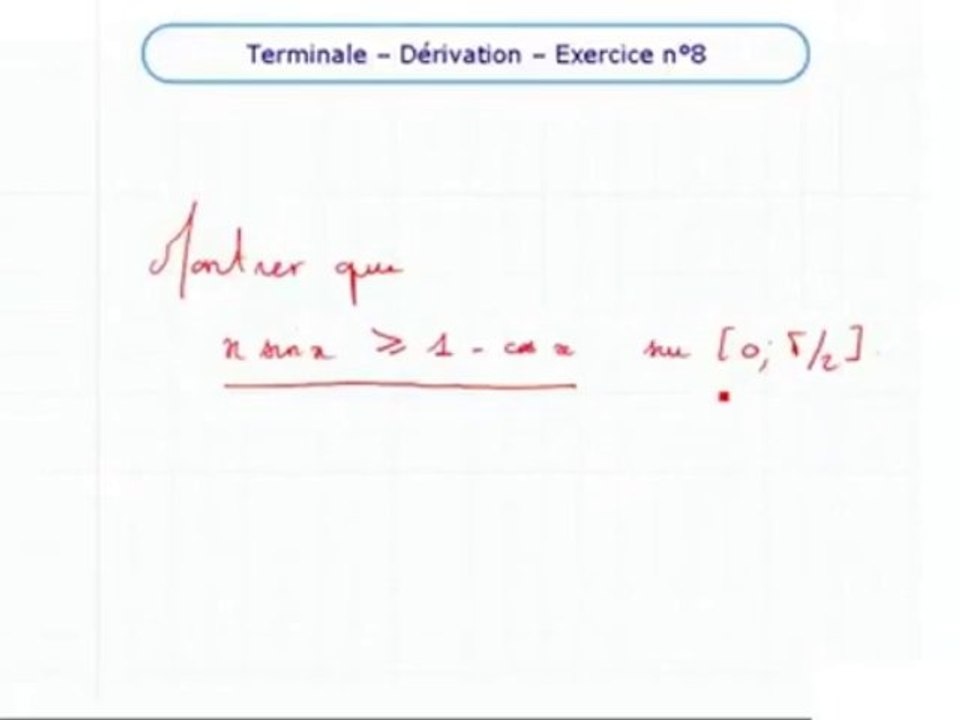 Terminale – Dérivation – Exercice n°8
Montrer que
x sin x ⩾ 1 - cos x sur [0; π/2]